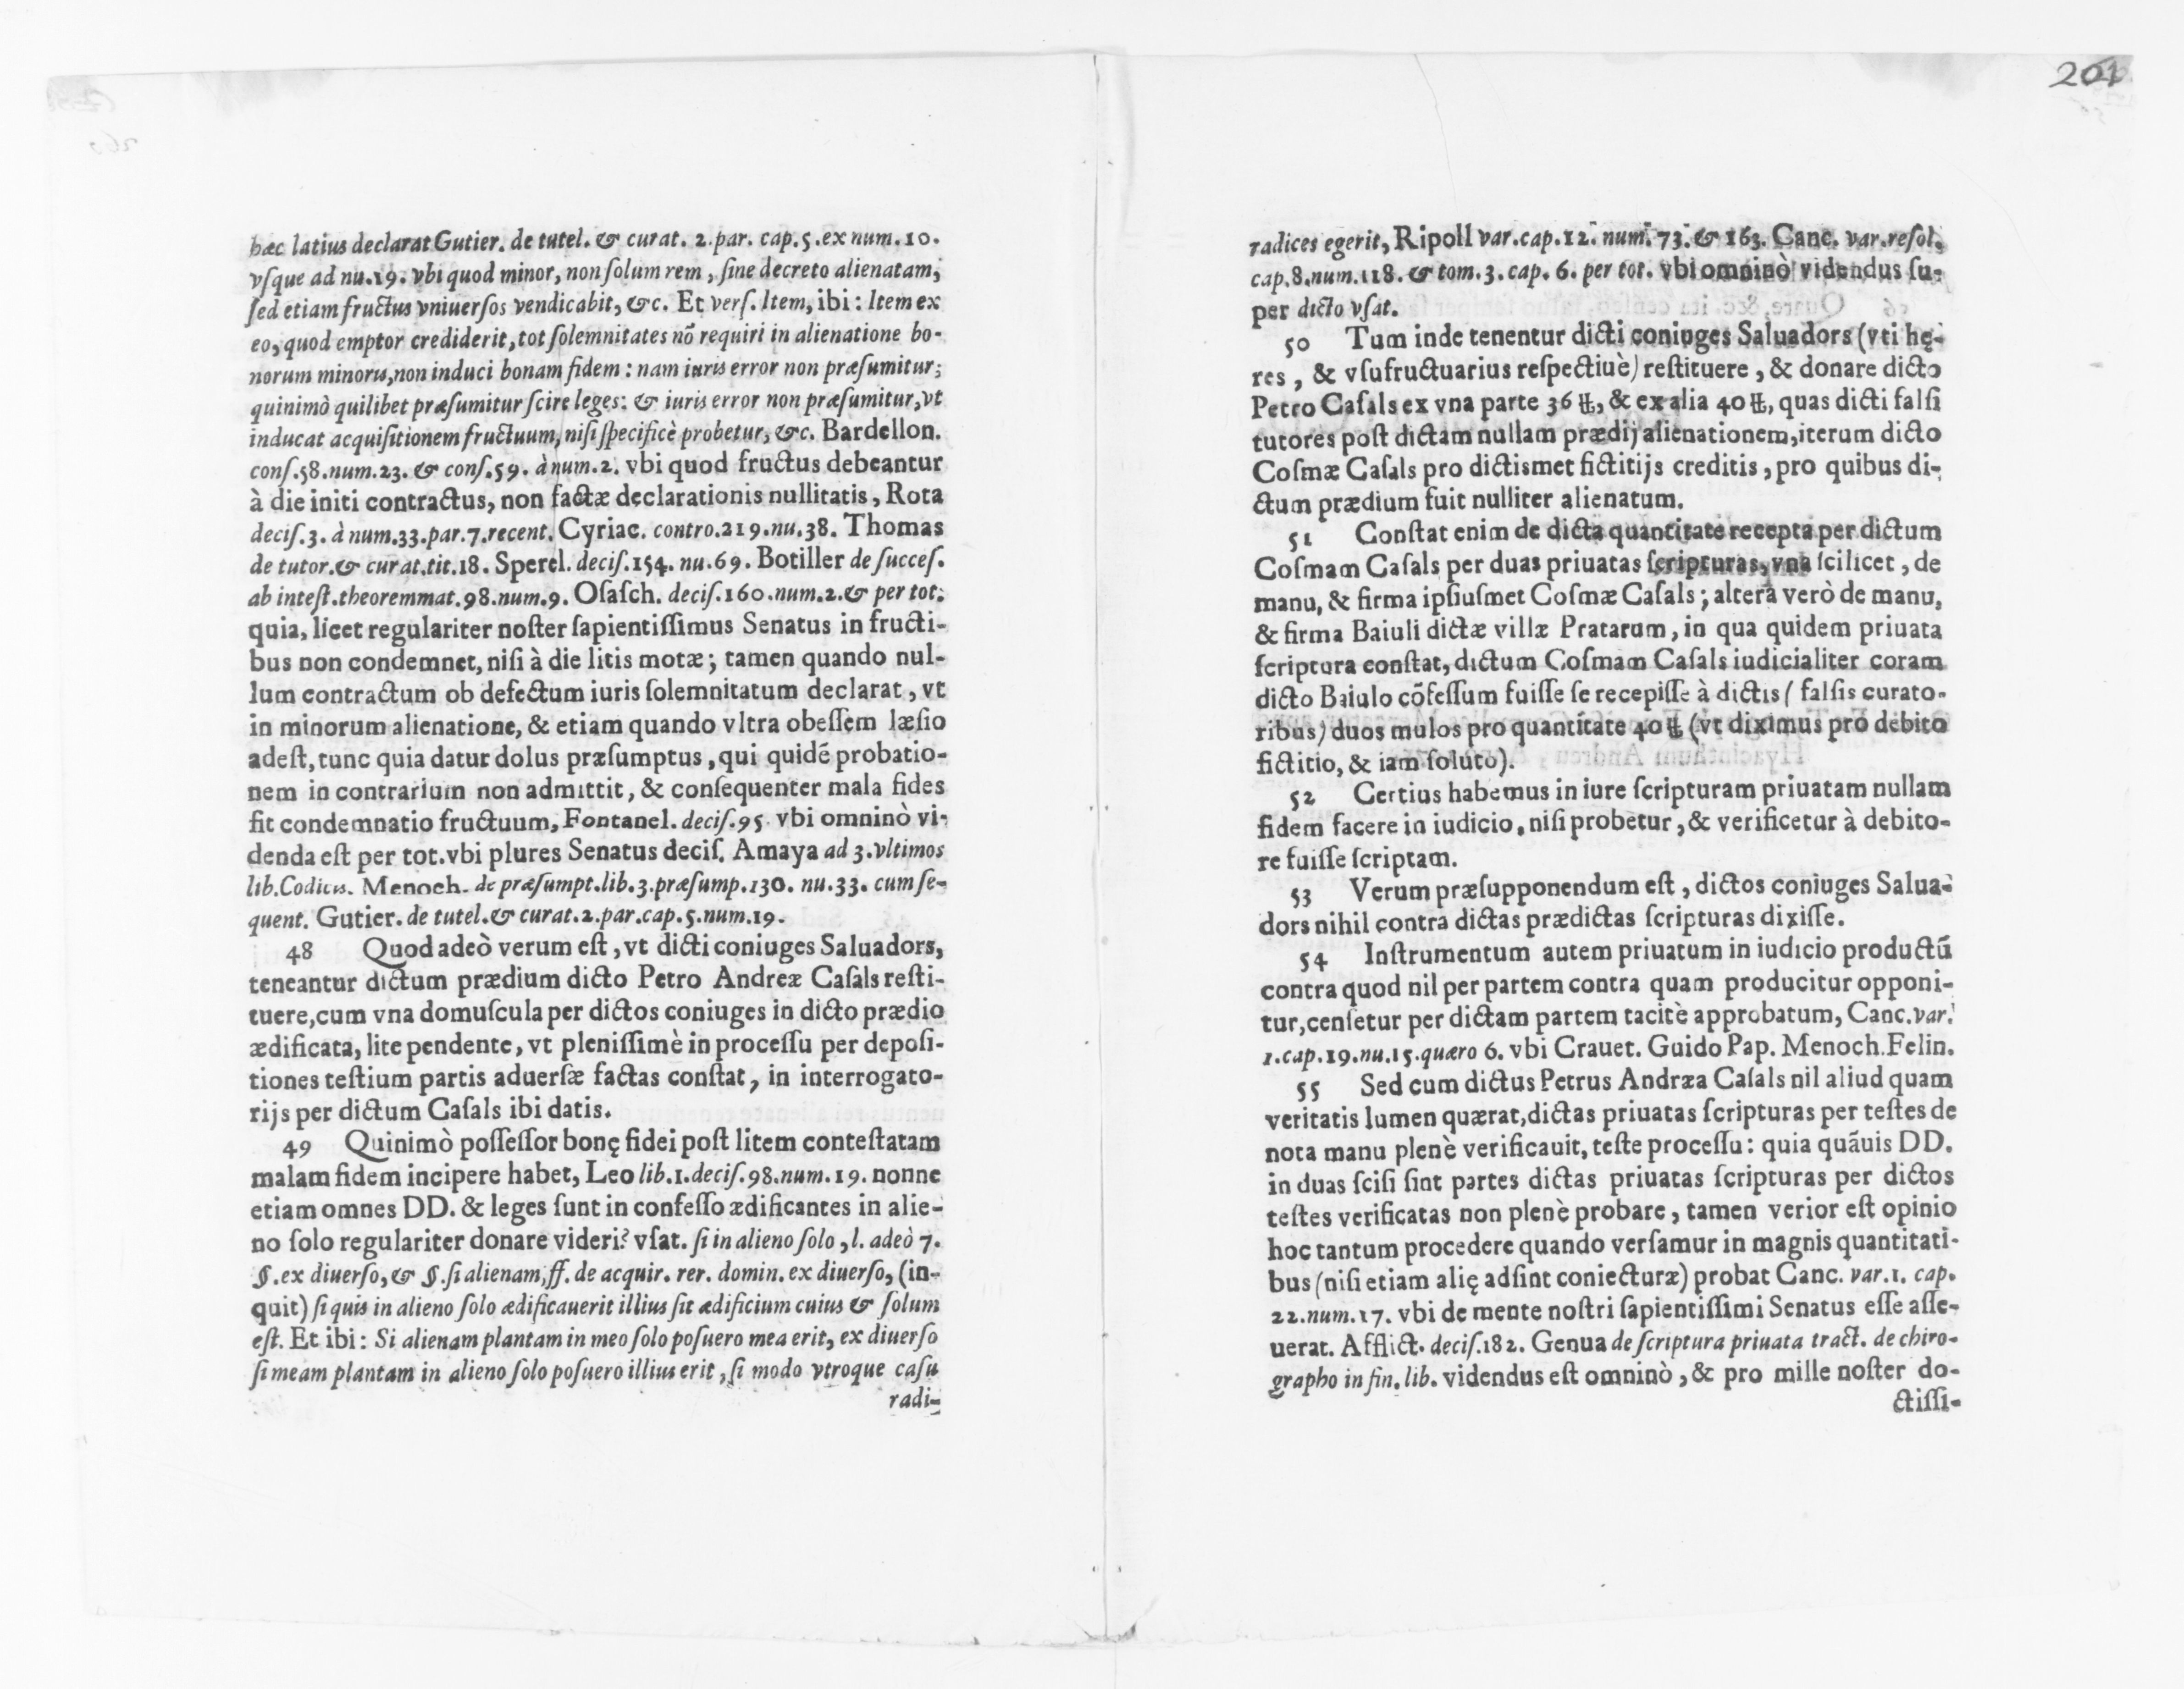 hæc latius declarat Gutier. de tutel. & curat. 2. par. cap. 5. ex num. 10.
vſque ad nu. 19. vbi quod minor, non ſolum rem, ſine decreto alienatam,
ſed etiam fructus vniuerſos vendicabit, &c. Et verſ. Item, ibi: Item ex
eo, quod emptor crediderit, tot ſolemnitates nō requiri in alienatione bo-
norum minoris, non induci bonam fidem: nam iuris error non præſumitur;
quinimò quilibet præſumitur ſcire leges: & iuris error non præſumitur, vt
inducat acquiſitionem fructuum, niſi ſpecificè probetur, &c. Bardellon.
conſ. 58. num. 23. & conſ. 59. à num. 2. vbi quod fructus debeantur
à die initi contractus, non factæ declarationis nullitatis, Rota
deciſ. 3. à num. 33. par. 7. recent. Cyriac. contro. 219. nu. 38. Thomas
de tutor. & curat. tit. 18. Sperel. deciſ. 154. nu. 69. Botiller de ſucceſ.
ab inteſt. theoremmat. 98. num. 9. Oſaſch. deciſ. 160. num. 2. & per tot.
quia, licet regulariter noſter ſapientiſſimus Senatus in fructi-
bus non condemnet, niſi à die litis motæ; tamen quando nul-
lum contractum ob defectum iuris ſolemnitatum declarat, vt
in minorum alienatione, & etiam quando vltra obeſſem læſio
adeſt, tunc quia datur dolus præſumptus, qui quidē probatio-
nem in contrarium non admittit, & conſequenter mala fides
fit condemnatio fructuum, Fontanel. deciſ. 95 vbi omninò vi-
denda eſt per tot. vbi plures Senatus deciſ. Amaya ad 3. vltimos
lib. Codicis. Menoch. de præſumpt. lib. 3. præſump. 130. nu. 33. cum ſe-
quent. Gutier. de tutel. & curat. 2. par. cap. 5. num. 19.
48 Quod adeò verum eſt, vt dicti coniuges Saluadors,
teneantur dictum prædium dicto Petro Andreæ Caſals reſti-
tuere, cum vna domuſcula per dictos coniuges in dicto prædio
ædificata, lite pendente, vt pleniſſimè in proceſſu per depoſi-
tiones teſtium partis aduerſæ factas conſtat, in interrogato-
rijs per dictum Caſals ibi datis.
49 Quinimò poſſeſſor bonę fidei poſt litem conteſtatam
malam fidem incipere habet, Leo lib. 1. deciſ. 98. num. 19. nonne
etiam omnes DD. & leges ſunt in confeſſo ædificantes in alie-
no ſolo regulariter donare videri? vſat. ſi in alieno ſolo, l. adeò 7.
§. ex diuerſo, & §. ſi alienam, ff. de acquir. rer. domin. ex diuerſo, (in-
quit) ſi quis in alieno ſolo ædificauerit illius ſit ædificium cuius & ſolum
eſt. Et ibi: Si alienam plantam in meo ſolo poſuero mea erit, ex diuerſo
ſi meam plantam in alieno ſolo poſuero illius erit, ſi modo vtroque caſu
radi-
201
radices egerit, Ripoll var. cap. 12. num. 73. & 163. Canc. var. reſol.
cap. 8. num. 118. & tom. 3. cap. 6. per tot. vbi omninò videndus ſu-
per dicto vſat.
50 Tum inde tenentur dicti coniuges Saluadors (vti hę-
res, & vſufructuarius reſpectiuè) reſtituere, & donare dicto
Petro Caſals ex vna parte 36 ℔, & ex alia 40 ℔, quas dicti falſi
tutores poſt dictam nullam prædij alienationem, iterum dicto
Coſmæ Caſals pro dictismet fictitijs creditis, pro quibus di-
ctum prædium fuit nulliter alienatum.
51 Conſtat enim de dicta quantitate recepta per dictum
Coſmam Caſals per duas priuatas ſcripturas, vna ſcilicet, de
manu, & firma ipſiuſmet Coſmæ Caſals; altera verò de manu,
& firma Baiuli dictæ villæ Pratarum, in qua quidem priuata
ſcriptura conſtat, dictum Coſmam Caſals iudicialiter coram
dicto Baiulo cōfeſſum fuiſſe ſe recepiſſe à dictis (falſis curato-
ribus) duos mulos pro quantitate 40 ℔ (vt diximus pro debito
fictitio, & iam ſoluto).
52 Certius habemus in iure ſcripturam priuatam nullam
fidem facere in iudicio, niſi probetur, & verificetur à debito-
re fuiſſe ſcriptam.
53 Verum præſupponendum eſt, dictos coniuges Salua-
dors nihil contra dictas prædictas ſcripturas dixiſſe.
54 Inſtrumentum autem priuatum in iudicio productū
contra quod nil per partem contra quam producitur opponi-
tur, cenſetur per dictam partem tacitè approbatum, Canc. var.
1. cap. 19. nu. 15. quæro 6. vbi Crauet. Guido Pap. Menoch. Felin.
55 Sed cum dictus Petrus Andræa Caſals nil aliud quam
veritatis lumen quærat, dictas priuatas ſcripturas per teſtes de
nota manu plenè verificauit, teſte proceſſu: quia quāuis DD.
in duas ſciſi ſint partes dictas priuatas ſcripturas per dictos
teſtes verificatas non plenè probare, tamen verior eſt opinio
hoc tantum procedere quando verſamur in magnis quantitati-
bus (niſi etiam alię adſint coniecturæ) probat Canc. var. 1. cap.
22. num. 17. vbi de mente noſtri ſapientiſſimi Senatus eſſe aſſe-
uerat. Afflict. deciſ. 182. Genua de ſcriptura priuata tract. de chiro-
grapho in fin. lib. videndus eſt omninò, & pro mille noſter do-
ctiſſi-